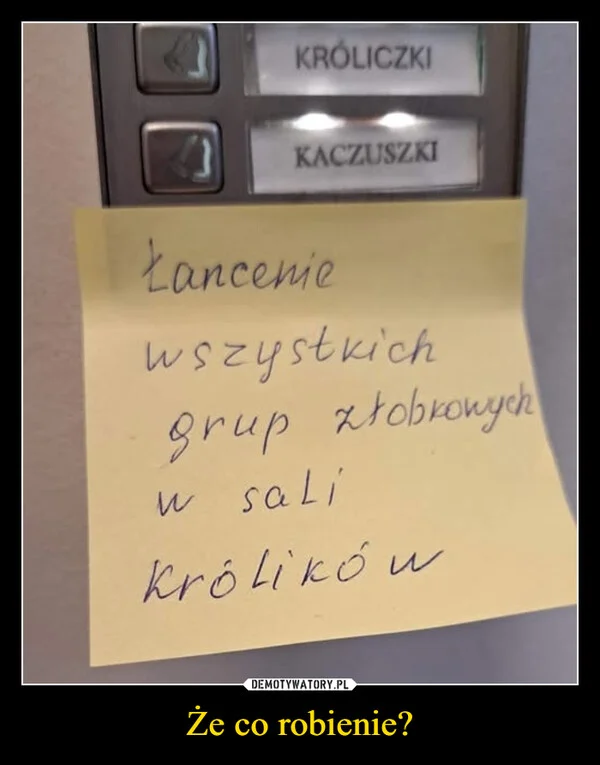 KRÓLICZKI
KACZUSZKI
Łancenie
wszystkich
grup złobkowych
w sali
Królików
DEMOTYWATORY.PL
Że co robienie?